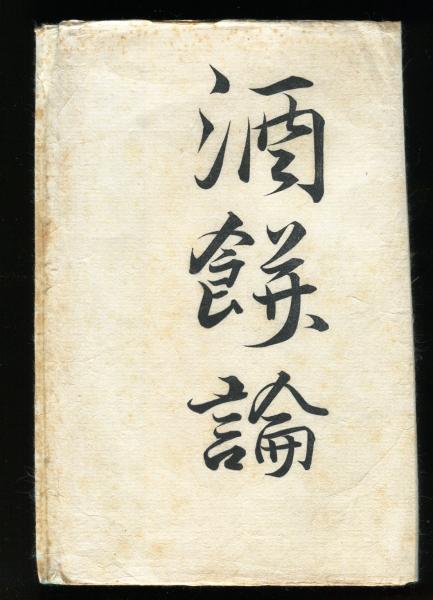 酒餅論